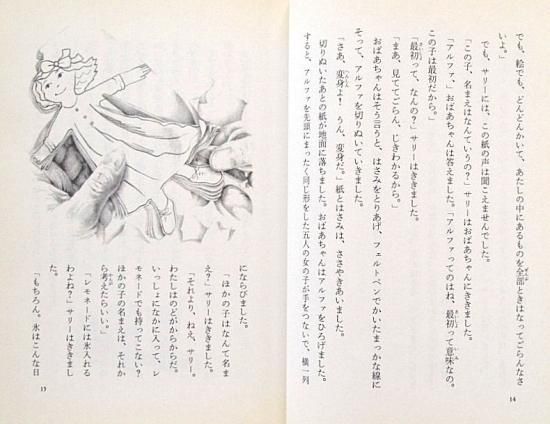 でも、絵でも、どんどんかいて、あたしの中にあるものを全部ときはなってごらんなさ
いよ。」
でも、サリーには、この紙の声は聞こえませんでした。
「この子、名まえはなんていうの？」サリーはおばあちゃんにききました。
「アルファ、」おばあちゃんは答えました。「アルファってのはね、最初って意味なの。
この子は最初だから。」
「最初って、なんの？」サリーはききました。
「まあ、見ててごらん、じきわかるから。」
おばあちゃんはそう言うと、はさみをとりあげ、フェルトペンでかいたまっかな線に
そって、アルファを切りぬいていきました。
「さあ、変身よ！　うん、変身だ。」紙とはさみは、ささやきあいました。
切りぬいたあとの紙が地面に落ちました。おばあちゃんはアルファをひろげました。
すると、アルファを先頭にまったく同じ形をした五人の女の子が手をつないで、横一列
14
にならびました。
「ほかの子はなんて名ま
え？」サリーはききました。
「それより、ねえ、サリー。
わたしはのどがからからだ。
いっしょになかに入って、レ
モネードでも持ってこない？
ほかの子の名まえは、それか
ら考えたらいい。」
「レモネードには氷入れる
わよね？」サリーはききまし
た。
「もちろん。氷はこんな日
15